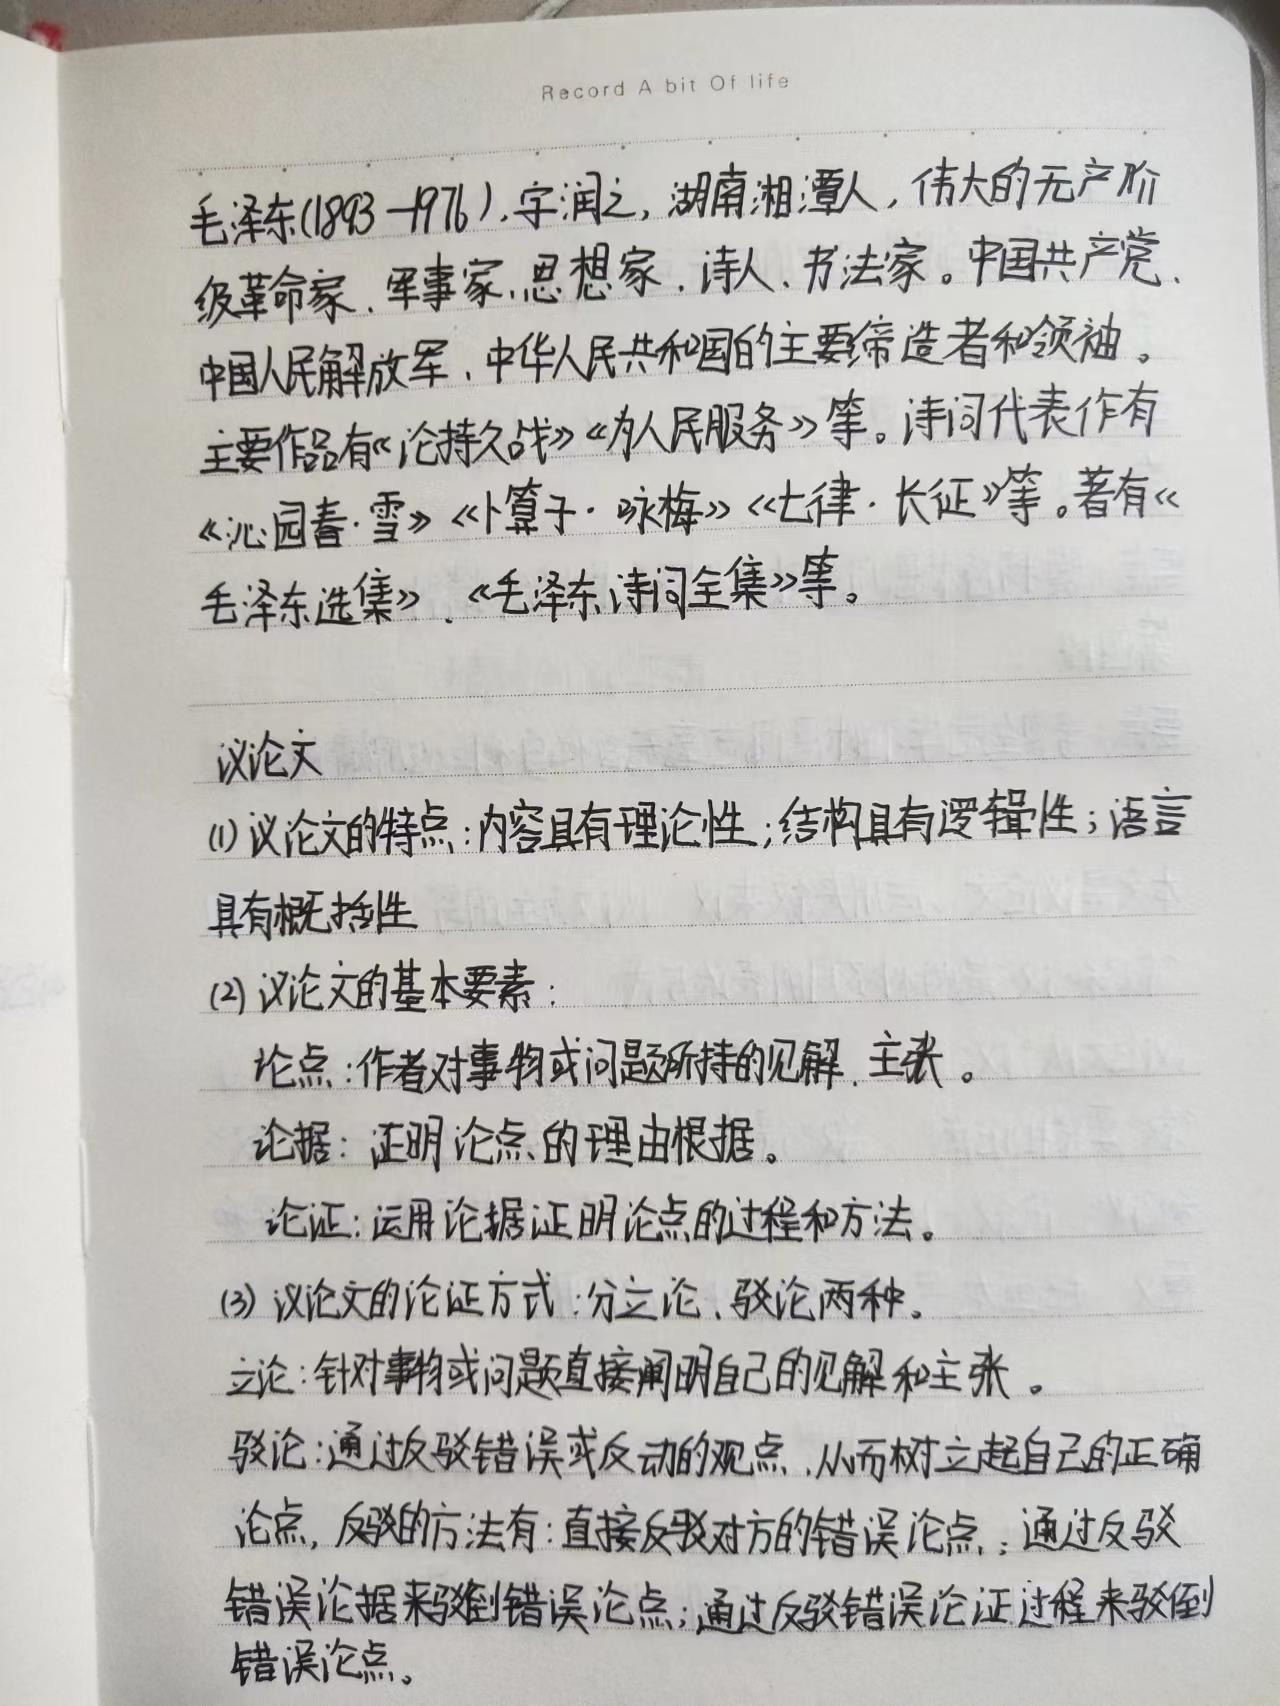 Record A bit Of life
毛泽东(1893-1976),字润之,湖南湘潭人,伟大的无产阶
级革命家、军事家、思想家、诗人、书法家。中国共产党、
中国人民解放军、中华人民共和国的主要缔造者和领袖。
主要作品有《论持久战》《为人民服务》等。诗词代表作有
《沁园春·雪》《卜算子·咏梅》《七律·长征》等。著有《
毛泽东选集》、《毛泽东诗词全集》等。
议论文
(1)议论文的特点:内容具有理论性;结构具有逻辑性;语言
具有概括性
(2)议论文的基本要素:
论点:作者对事物或问题所持的见解、主张。
论据:证明论点的理由根据。
论证:运用论据证明论点的过程和方法。
(3)议论文的论证方式:分立论、驳论两种。
立论:针对事物或问题直接阐明自己的见解和主张。
驳论:通过反驳错误或反动的观点,从而树立起自己的正确
论点,反驳的方法有:直接反驳对方的错误论点;通过反驳
错误论据来驳倒错误论点;通过反驳错误论证过程来驳倒
错误论点。